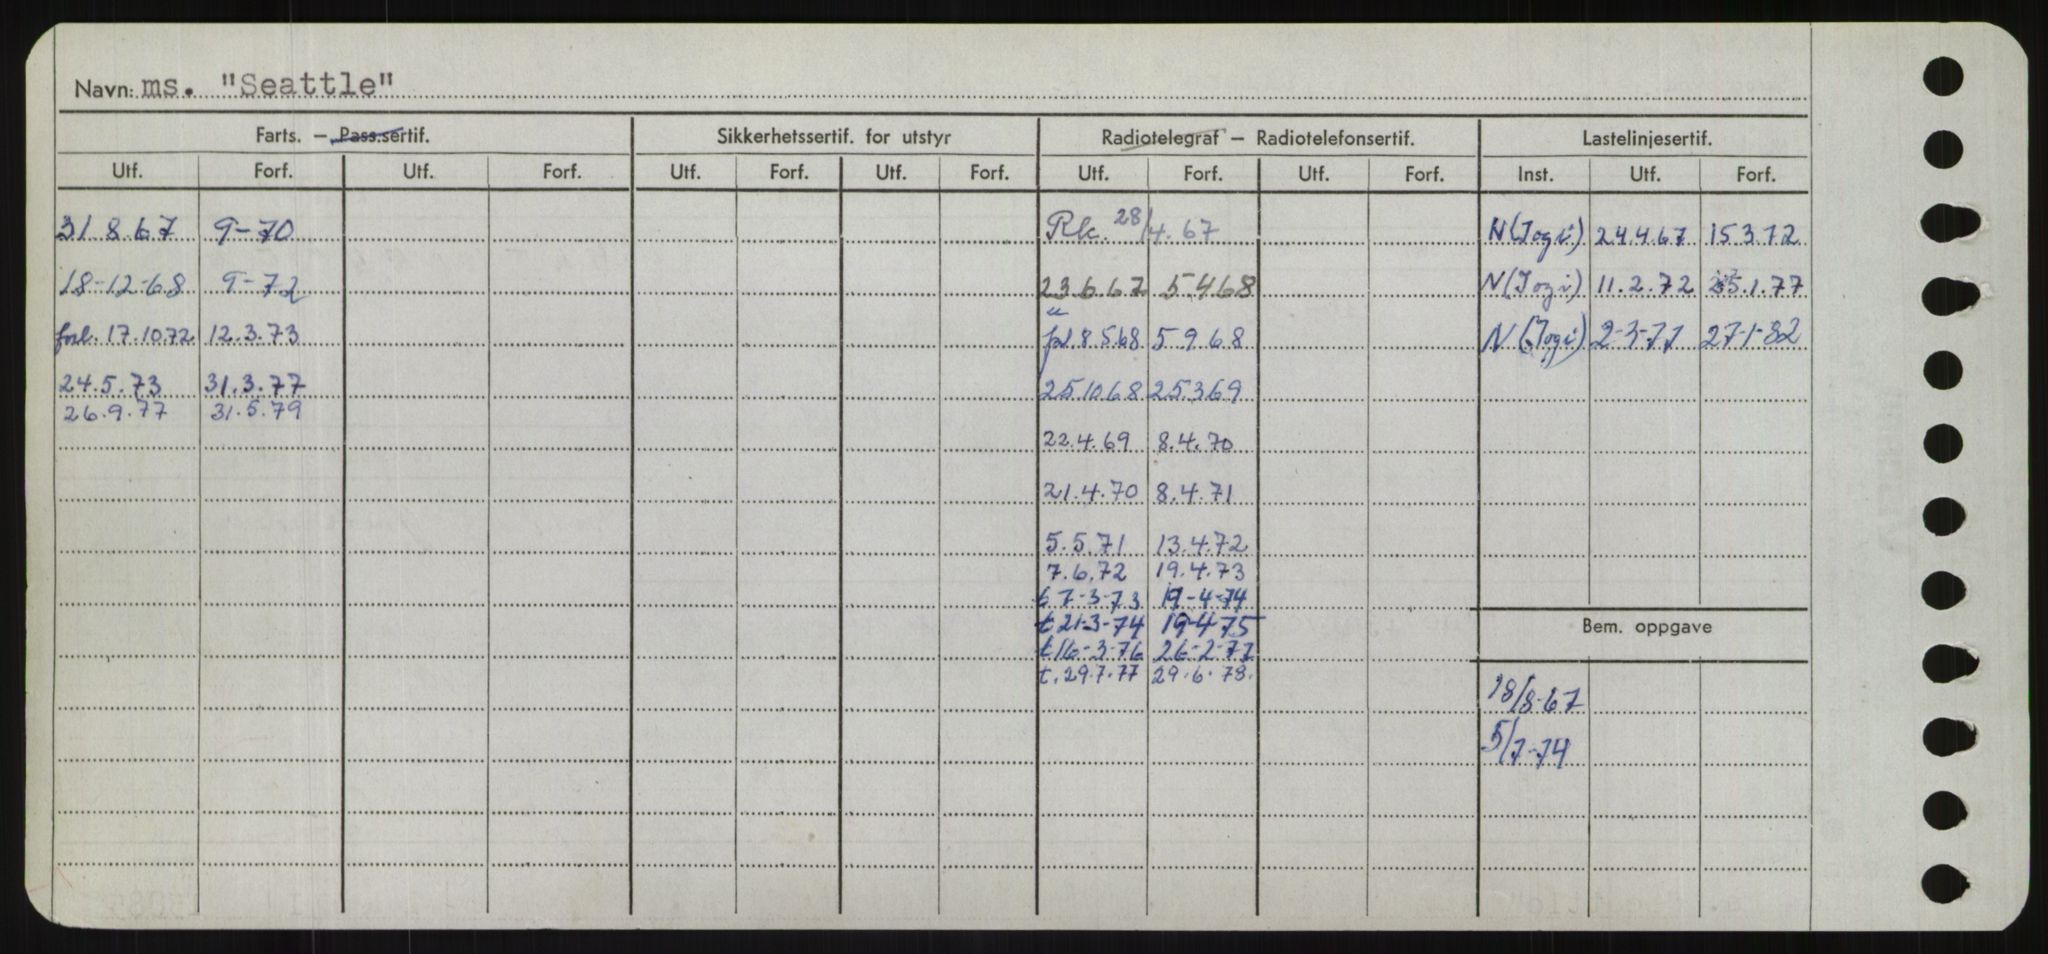 Navn: ms. "Seattle"
Farts. — Pass.sertif. Sikkerhetssertif. for utstyr Radiotelegraf — Radiotelefonsertif. Lastelinjesertif.
Utf. Forf. Utf. Forf. Utf. Forf. Utf. Forf. Utf. Forf. Utf. Forf. Inst. Utf. Forf.
31.8.67 9-70 Rk. 28/4.67 N(Jogi) 24.4.67 15.3.72
18-12-68 9-72 23.6.67 5.4.68 N(Jogi) 11.2.72 1.77
"
forl. 17.10.72 12.3.73 8.5.68 5.9.68 N(Jogi) 2-3-77 27-1-82
24.5.73 31.3.77 25.10.68 25.3.69
26.9.77 31.5.79
22.4.69 8.4.70
21.4.70 8.4.71
5.5.71 13.4.72
7.6.72 19.4.73
t 7-3-73 19-4-74
t 21-3-74 19-4-75
Bem. oppgave
t 16-3-76 26-2-77
t. 29.7.77 29.6.78.
18/8-67
5/7-74